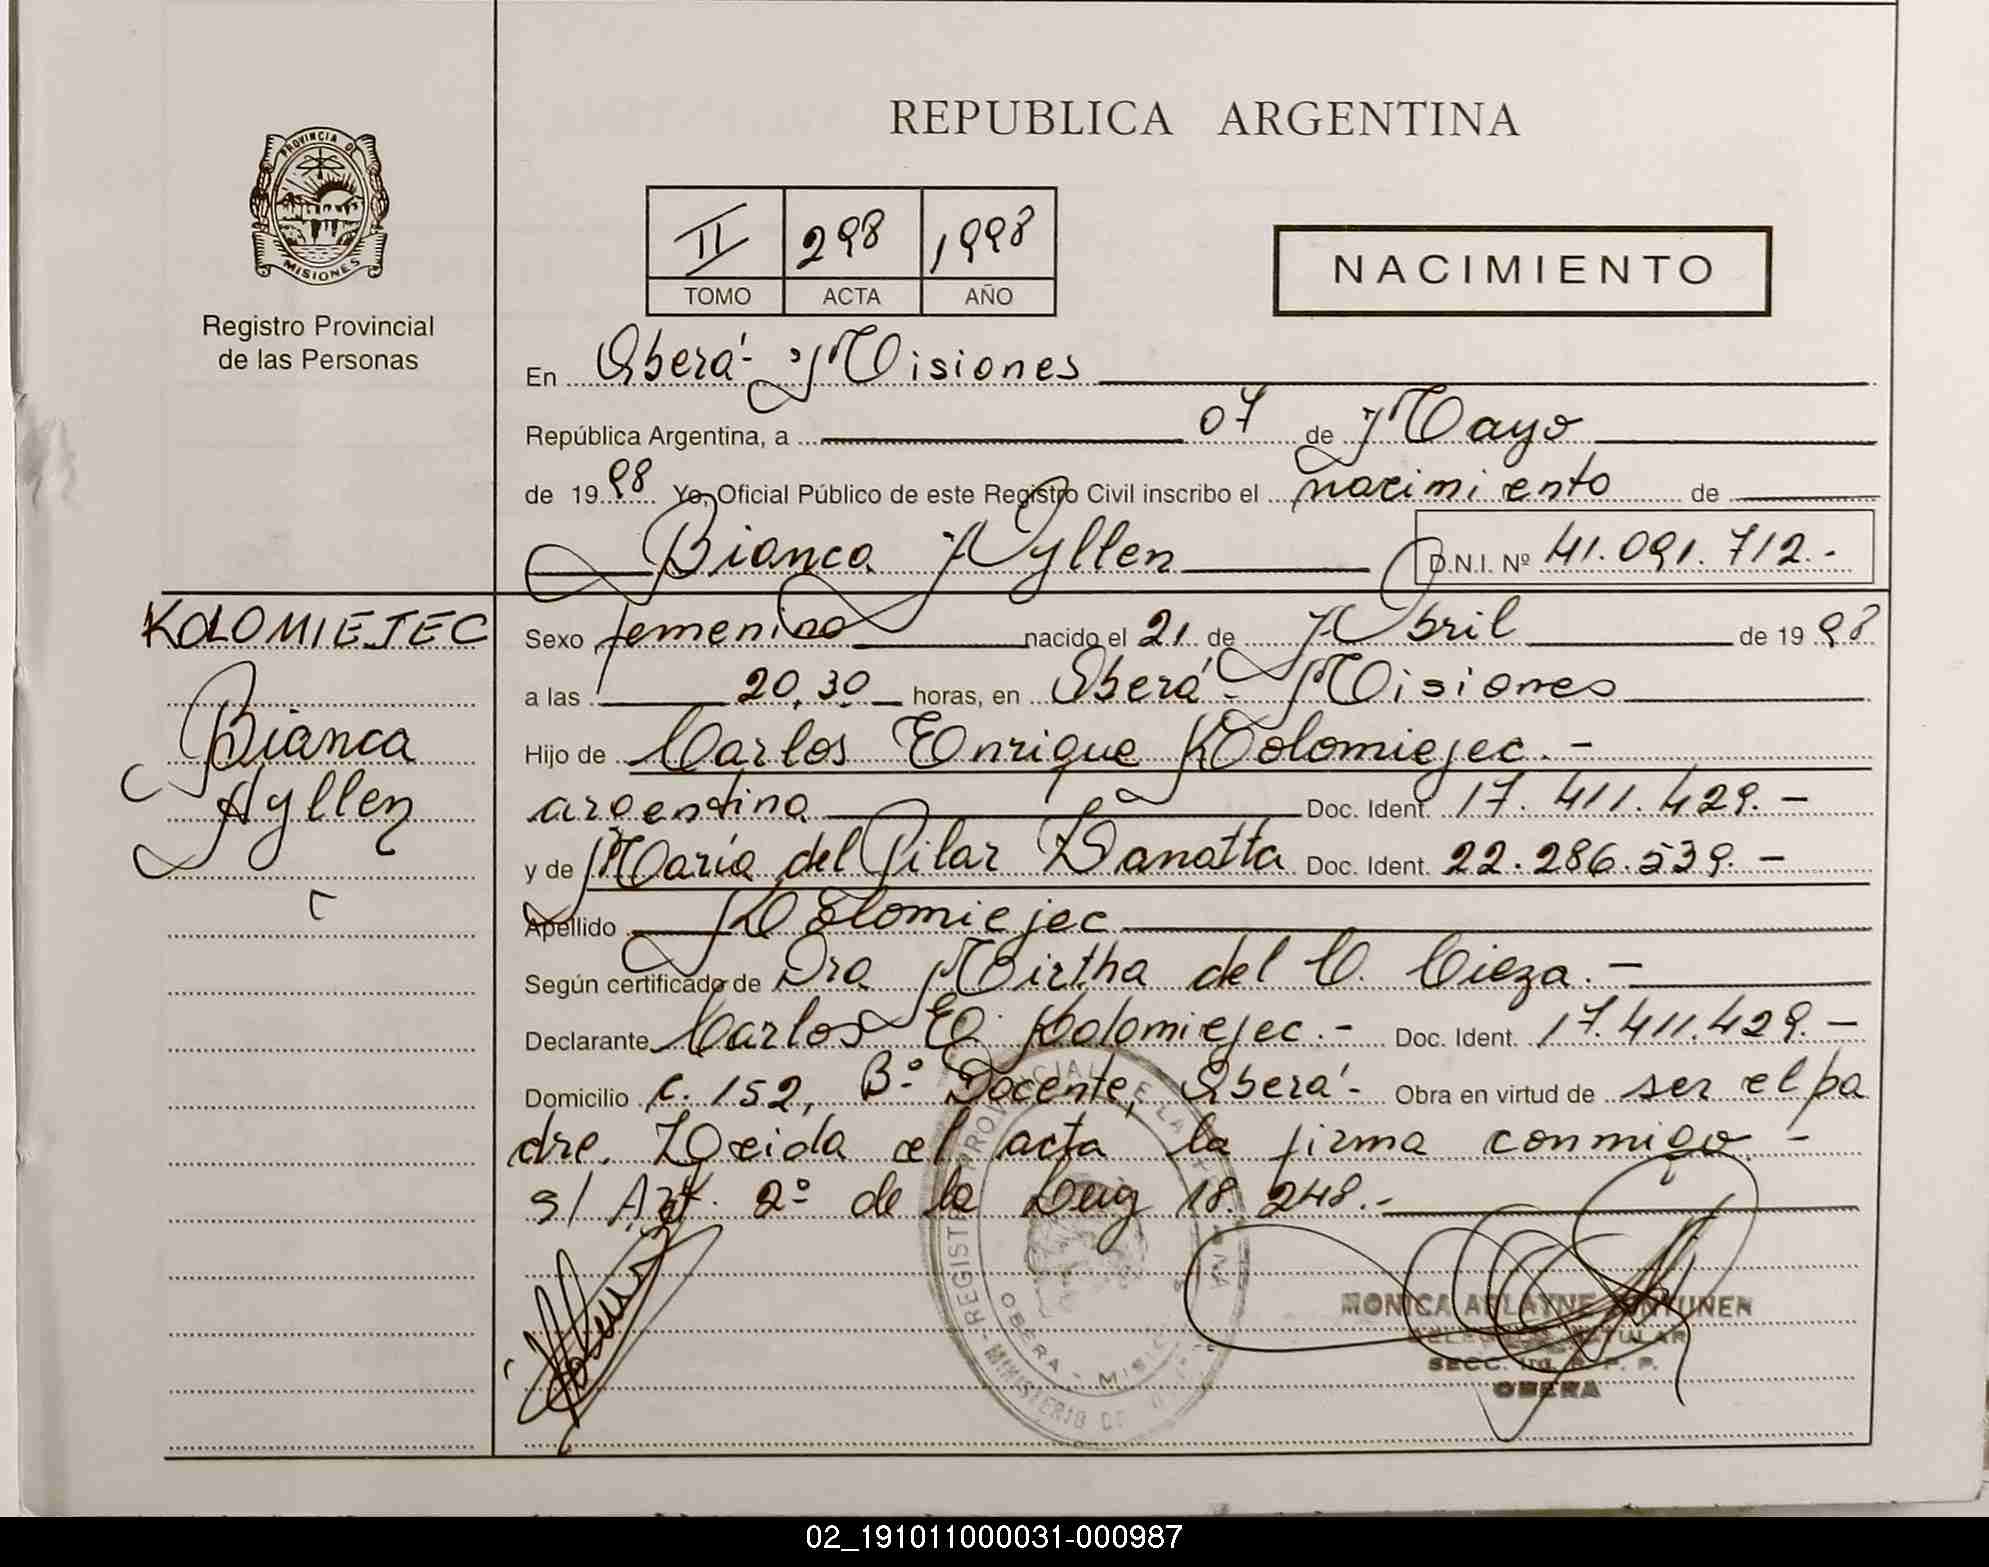 PROVINCIA DE
MISIONES
Registro Provincial
de las Personas
REPUBLICA ARGENTINA
II 298 1998
TOMO ACTA AÑO
NACIMIENTO
En Oberá - Misiones
República Argentina, a 07 de Mayo
de 1998 Yo, Oficial Público de este Registro Civil inscribo el nacimiento de
Bianca Ayllen D.N.I. Nº 41.091.712.-
KOLOMIEJEC
Bianca
Ayllen
Sexo femenino nacido el 21 de Abril de 1998
a las 20,30 horas, en Oberá - Misiones
Hijo de Carlos Enrique Kolomiejec.-
argentino Doc. Ident. 17.411.429.-
y de María del Pilar Zanatta Doc. Ident. 22.286.539.-
Apellido Kolomiejec
Según certificado de Dra Mirtha del C. Cieza.-
Declarante Carlos E. Kolomiejec.- Doc. Ident. 17.411.429.-
Domicilio C. 152, Bº Docente, Oberá- Obra en virtud de ser el pa
dre. Leida el acta la firma conmigo.-
s/ Art. 2º de la Ley 18.248.-
MONICA
TITULAR
SECC. R. P. P.
OBERA
REGISTRO PROVINCIAL DE LAS
OBERA - MISIONES
MINISTERIO DE
02_191011000031-000987